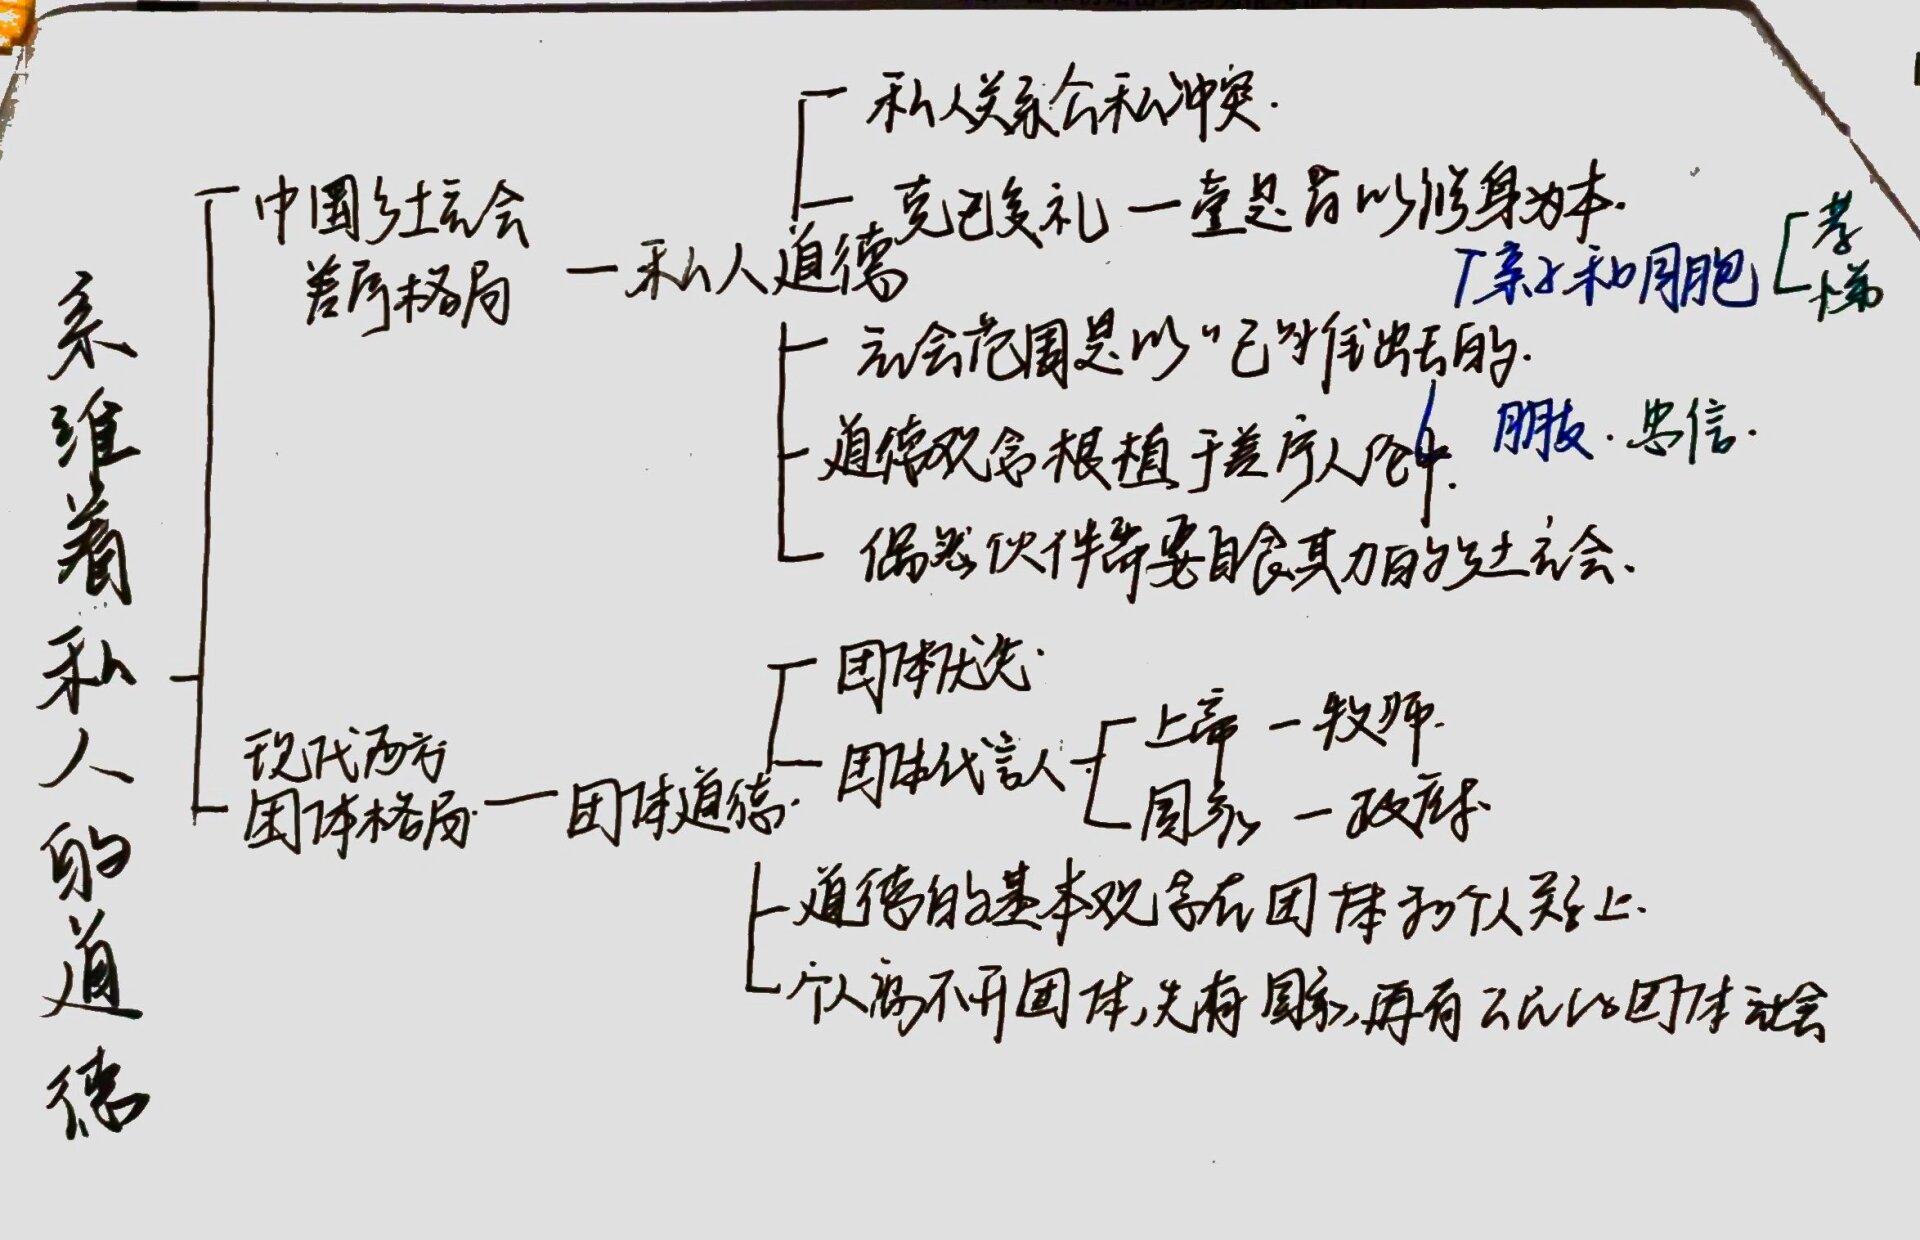 系维着私人的道德
中国乡土社会
差序格局
私人道德
私人关系公私冲突.
克己复礼 一壹是皆以修身为本.
社会范围是以“己”外推出去的.
亲子和同胞
孝
悌
朋友. 忠信.
道德观念根植于差序人伦中.
偶然伙伴需要自食其力的乡土社会.
现代西方
团体格局.
团体道德.
团体优先.
团体代言人
上帝 — 牧师.
国家 — 政府.
道德的基本观念在团体和个人关系上.
个人离不开团体,先有国家,再有公民的团体社会